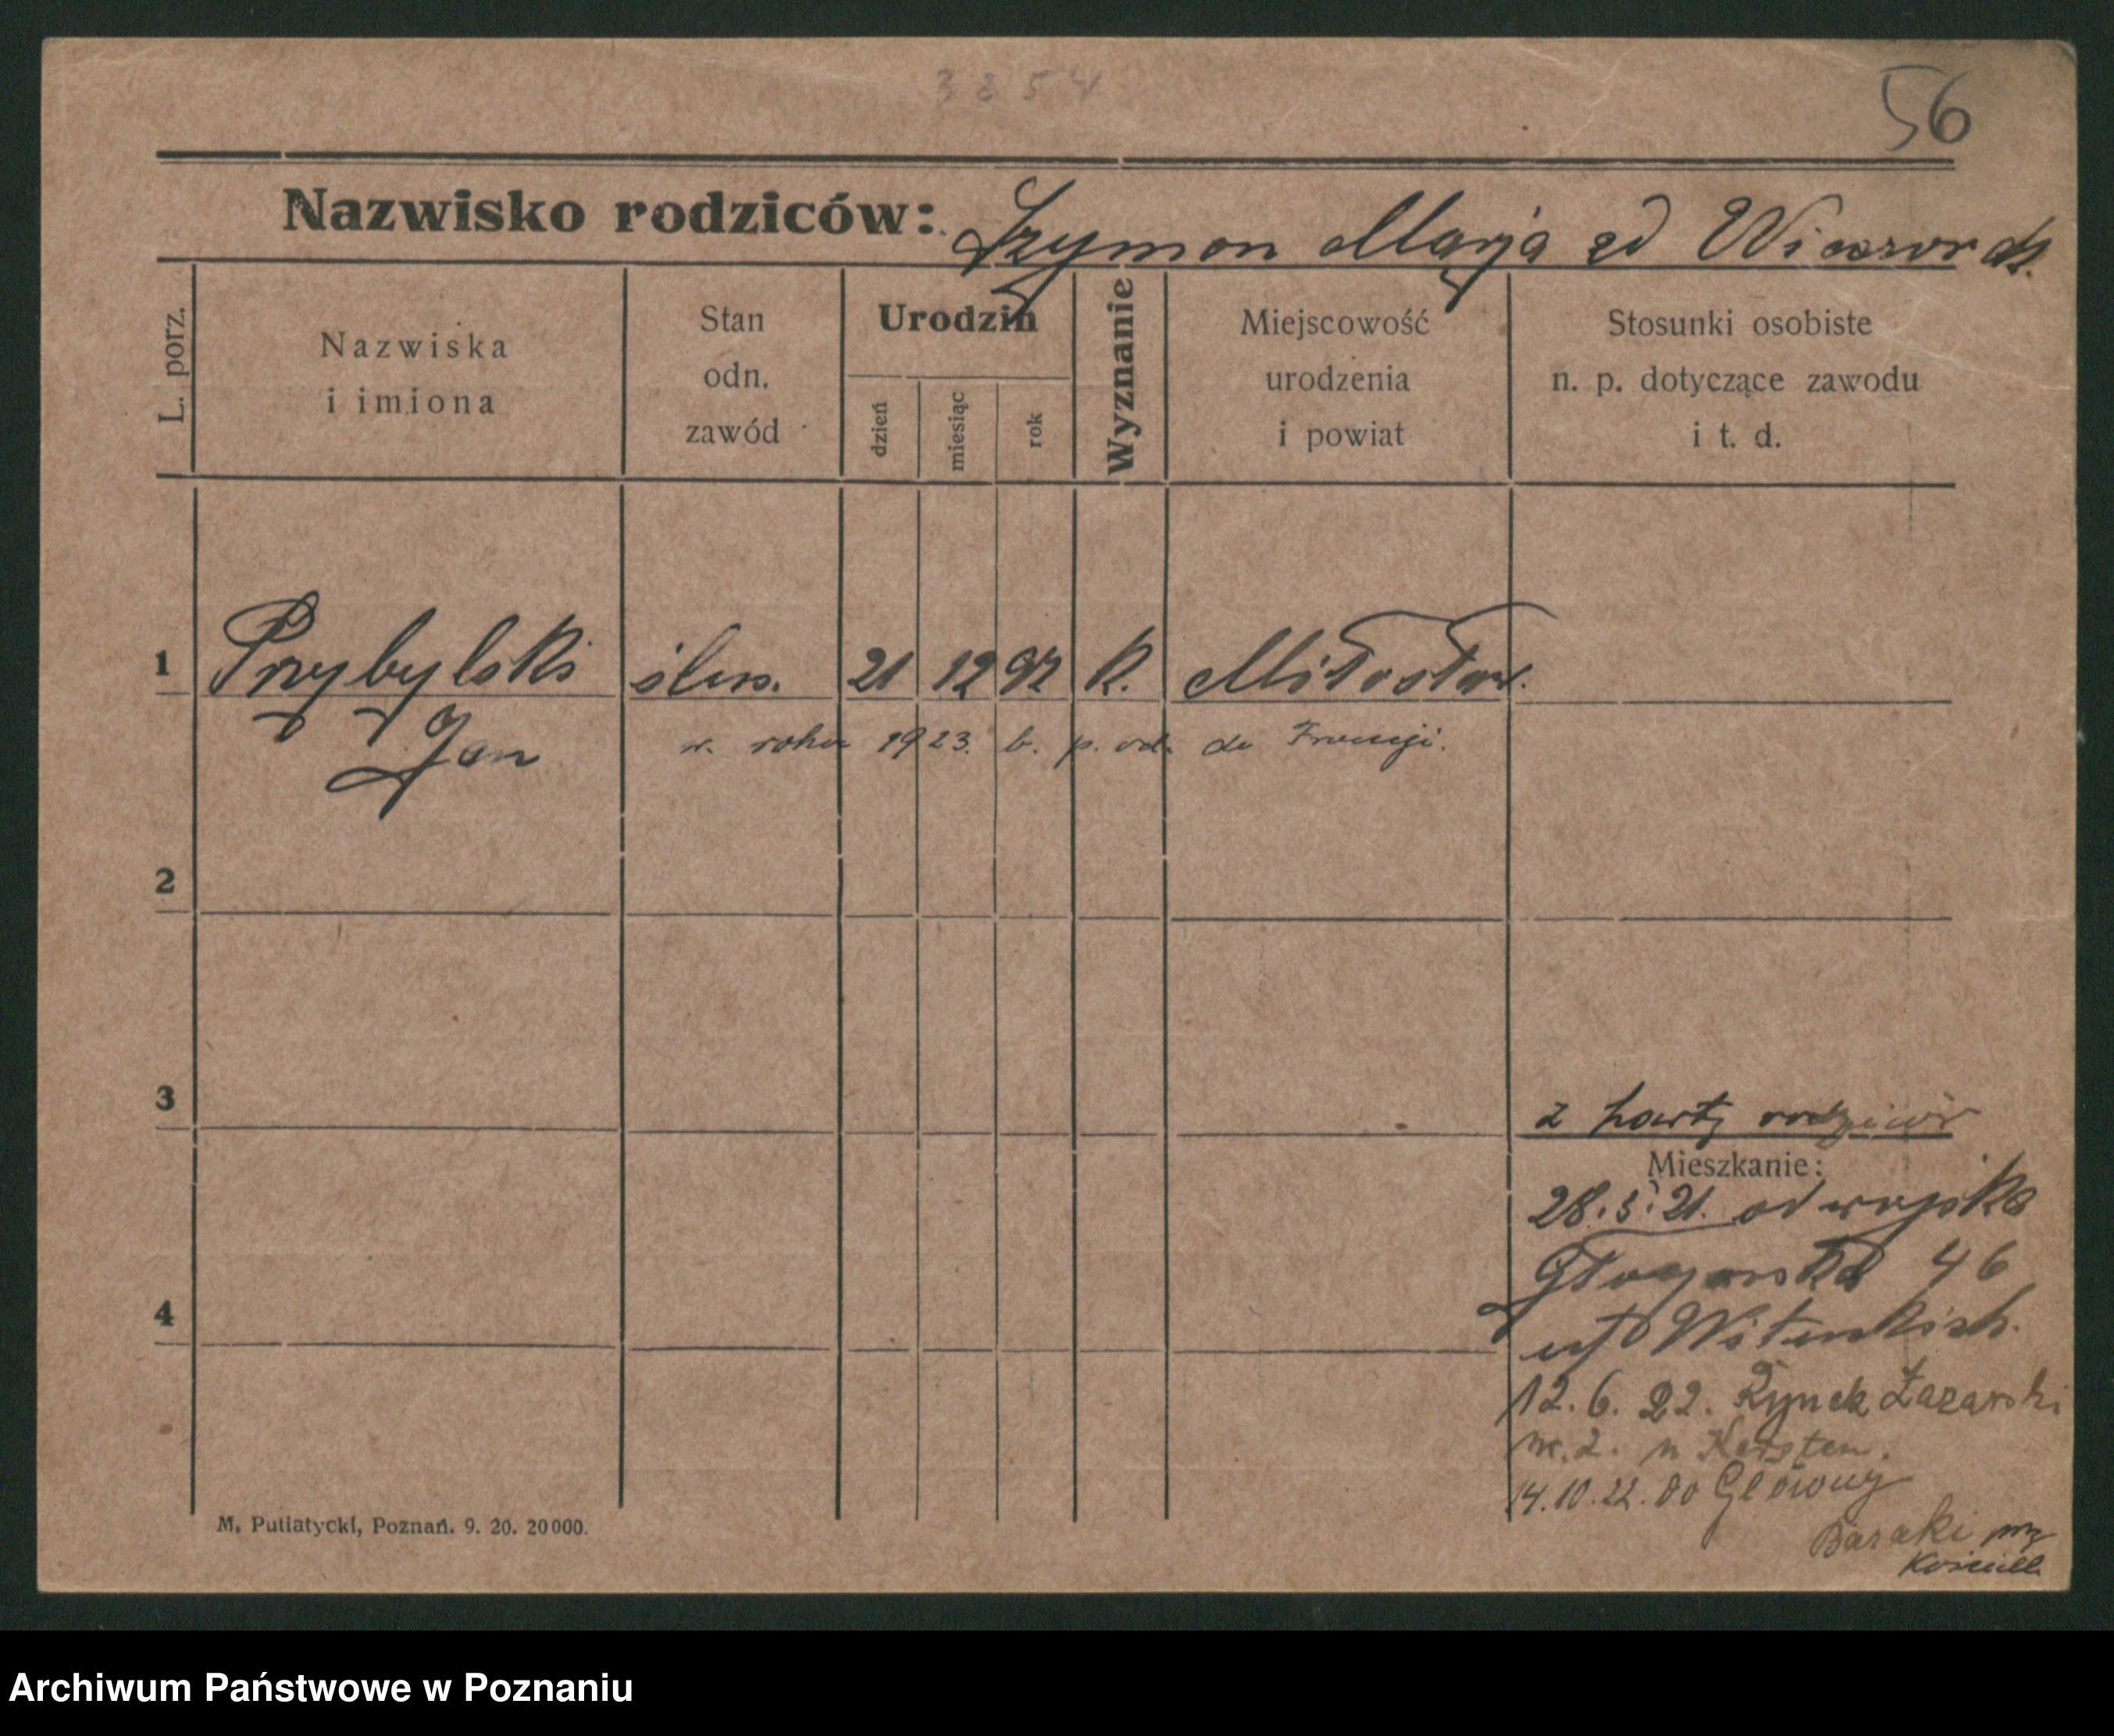 3254
56
Nazwisko rodziców: Szymon Marja
L. porz.
Nazwiska i imiona
Stan odn. zawód
Urodzin
dzień
miesiąc
rok
Wyznanie
Miejscowość urodzenia i powiat
Stosunki osobiste n. p. dotyczące zawodu i t. d.
1 Przybylski ślus. 21 12 97 k. Miłosław.
Jan
w. roku 1923. b. p. od. do Francji.
2
3
z karty rodziców
Mieszkanie:
28.5.21. od wojska
Głogowska 46
4
12.6.22. Rynek Łazarski
nr. 2. u Kersten.
14.10.22. do Główny
Baraki przy
M. Putiatycki, Poznań. 9. 20. 20000.
Archiwum Państwowe w Poznaniu